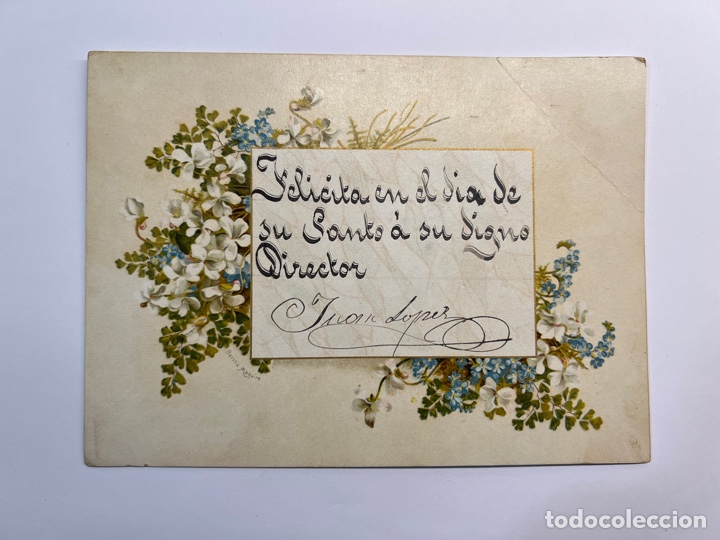 Felicita en el dia de
su Santo á su digno
Director
Juan Lopez
todocoleccion